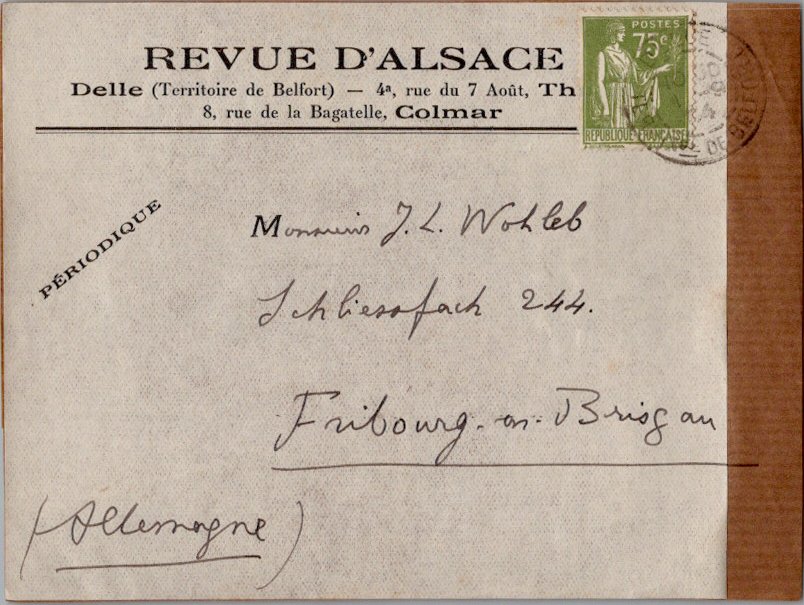 REVUE D'ALSACE
Delle (Territoire de Belfort) — 4ª, rue du 7 Août, Th
8, rue de la Bagatelle, Colmar
POSTES
75c
RÉPUBLIQUE FRANÇAISE
PÉRIODIQUE
Monsieur J. L. Wohleb
Schliessfach 244.
Fribourg-en-Brisgau
(Allemagne)